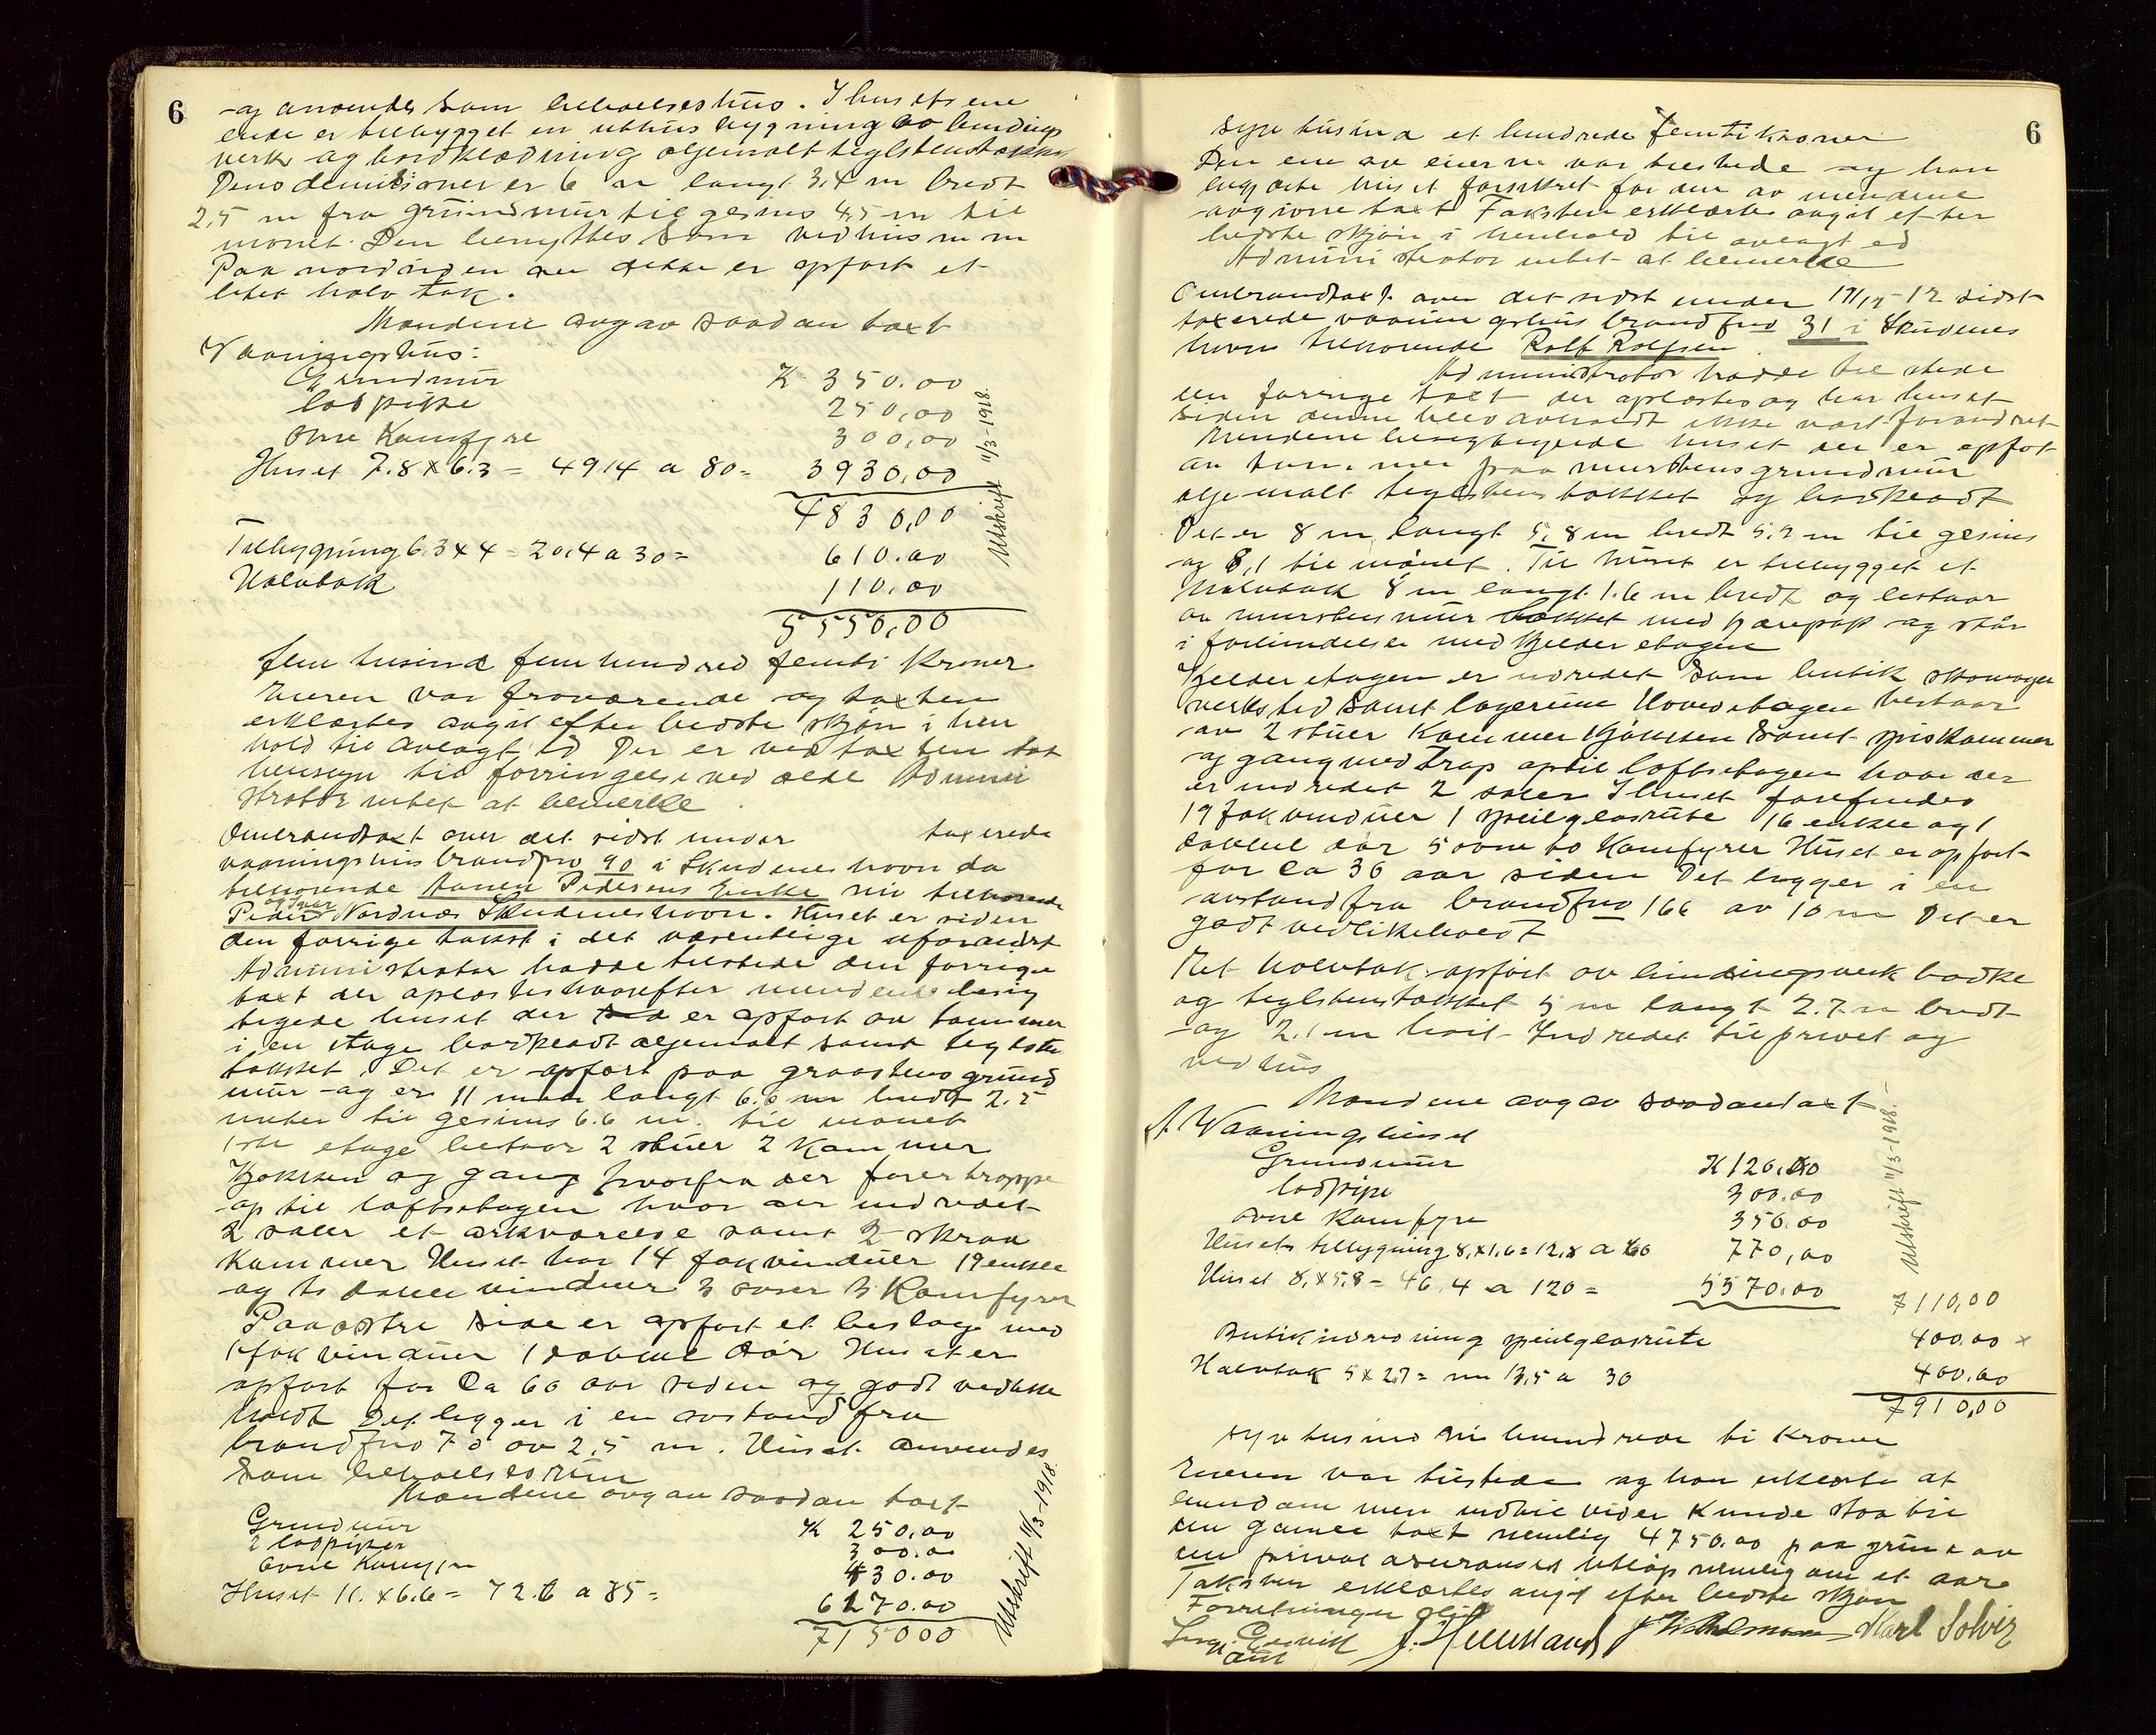 6
og anvendes som beboelseshus. I husets ene
ende er tilbygget en uthusbygning av bindings
verk og bordklædning oljemalt teglstenstækket
Dens demisioner er 6 m langt 3,4 m bredt
2,5 m fra grundmur til gesims 4,5 m til
mønet. Den benyttes som vedhus m m
Paa nordsiden av dette er opført et
litet halv tak.
Mændene avgav saadan taxt
Vaaningshus:
Grundmur K 350.00
lodpipe 250,00
Ovne Komfyre 300,00
Huset 7.8 x 6.3 = 49.14 a 80 = 3930,00
4830,00
Tilbygning 6.3 x 4 = 20.4 a 30 = 610.00
Halvtak 110.00
5550,00
Utskrift 11/3-1918.
fem tusind fem hundred femti Kroner
Eieren var fraværende og taxten
erklærtes avgit efter bedste skjøn i hen
hold til avlagt ed Der er ved taxten tat
hensyn til forringelse ved ælde Admini
strator intet at bemerke.
Ombrandtaxt over det sidst under taxerede
vaaningshus brandfno 90 i Skudeneshavn da
tilhørende Pedersens Enke nu tilhørende
og Ivar
Peder Nordnæs Skudeneshavn. Huset er siden
den forrige takst i det væsentlige uforandret
Administrator hadde tilstede den forrige
taxt der oplæstes hvorefter mændene besig
tigede huset der er opført av tømmer
i en etage bordklædt oljemalt samt teglsten
tækket. Det er opført paa graastens grund
mur og er 11 meter langt 6.6 m bredt 2.5
meter til gesims 6.6 m. til mønet
1ste etage bestaar 2 stuer 2 Kammer
Kjøkken og gang hvorfra der fører trappe
op til loftsetagen hvor der indredet
2 saler et arkværelse samt 2 skraa
Kammer Huset har 14 fakvinduer 19 enkle
og to doble vinduer 3 ovner 3 Komfyrer
Paa østre side er opført et beslag med
1 fak vinduer 1 dobbelt dør Huset er
opført for Ca 60 aar siden og godt vedlike
holdt Det ligger i en avstand fra
brandfno 70 av 2,5 m. Huset anvendes
som beboelsesrum
Mændene avgav saadan taxt
Grundmur K 250.00
2 lodpiper 300.00
Ovne Komfyr 430.00
Huset 11. x 6.6 = 72.6 a 85 = 6170.00
715000
Utskrift 11/3-1918.
6
syv tusind et hundrede femti Kroner
Den ene av eierne var tilstede og han
begjærte huset forsikret for den av mændene
avgivne taxt Taksten erklærtes avgit efter
bedste skjøn i henhold til avlagt ed
Administrator intet at bemerke
Ombrandtaxt over det sidst under 17/12-12 sidst
taxerede vaaningshus brandfno 31 i Skudenes
havn tilhørende Rolf Rolfsen.
Administrator hadde tilstede
den forrige taxt der oplæstes og har huset
siden denne blev avholdt ikke vært forandret
Mændene besigtigede huset der er opført
av tømmer paa murstens grundmur
oljemalt teglstens tækket og bordklædt
Det er 8 m langt 5,8 m bredt 5.2 m til gesims
og 8,1 til mønet. Til huset er tilbygget et
Halvtak 8 m langt 1.6 m bredt og bestaar
av murstensmur tækket med tjærepap og står
i forbindelse med kjelder etagen
Kjelder etagen er indredet som butik skomager
verksted samt lagerrum Hovedetagen bestaar
av 2 stuer Kammer Kjøkken samt spiskammer
og gang med trap optil loftsetagen hvor der
er indredet 2 saler I huset forefindes
19 fakvinduer 1 speilglasrute 16 enkle og 1
dobbel dør 5 ovne to Komfyrer Huset er opført
for Ca 36 aar siden Det ligger i en
avstand fra brandfno 166 av 10 m Det er
godt vedlikeholdt
Et halvtak opført av bindingsverk bordkl
og teglstenstækket 5 m langt 2.7 m bredt
og 2.1 m høit Indredet til privet og
vedhus
Mændene avgav saadan taxt
A. Vaaningshuset
Grundmur K 120.00
lodpipe 300.00
Ovne Komfyre 350.00
Husets tilbygning 8, x 1.6 = 12,8 a 60 770,00
Huset 8, x 5,8 = 46.4 a 120 = 5570.00
7110,00
Butikindredning speilglasrute 400.00 x
Halvtak 5 x 2.7 = m 13.5 a 30 400.00
7910,00
Utskrift 11/3-1918.
syv tusind ni hundrede ti Kroner
Eieren var tilstede og han erklærte at
han indtil vider kunde staa til
den gamle taxt nemlig 4750.00 paa grund av
den privat assuranses utløp nemlig om et aar
Taksten erklærtes avgit efter bedste skjøn
Forretningen slut
J. Wathelmann Karl Solvig